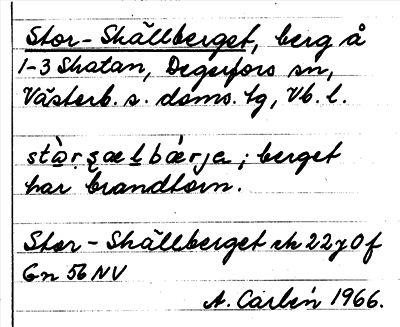 Stor-Skällberget, berg å
1-3 Skatan, Degerfors sn,
Västerb. s. doms. tg, Vb. l.
stò̱ṛ ȿæḻbǽrjə; berget
har brandtorn.
Stor-Skällberget ek 22y0f
Gn 56 NV
A. Carlén 1966.